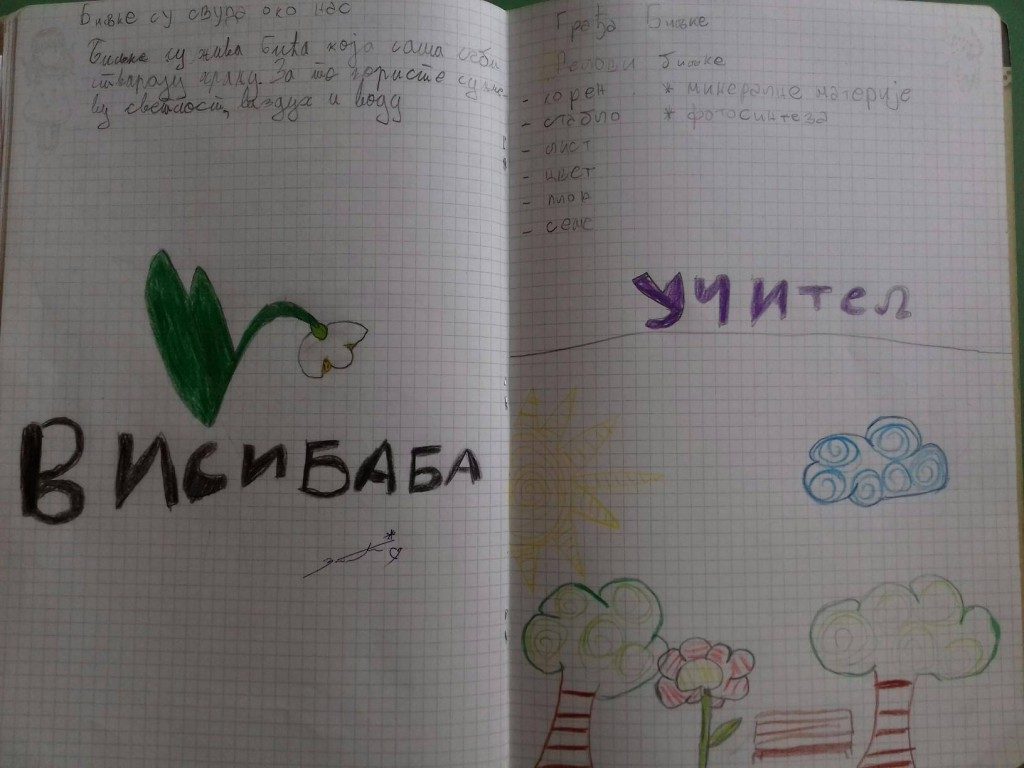 Биљке су свуда око нас
Биљке су жива бића која сама себи
стварају храну. За то користе сунче-
ву светлост, ваздух и воду
ВИСИБАБА
Грађа Биљке
Делови Биљке
- корен * минералне материје
- стабло * фотосинтеза
- лист
- цвет
- плод
- семе
УЧИтељ